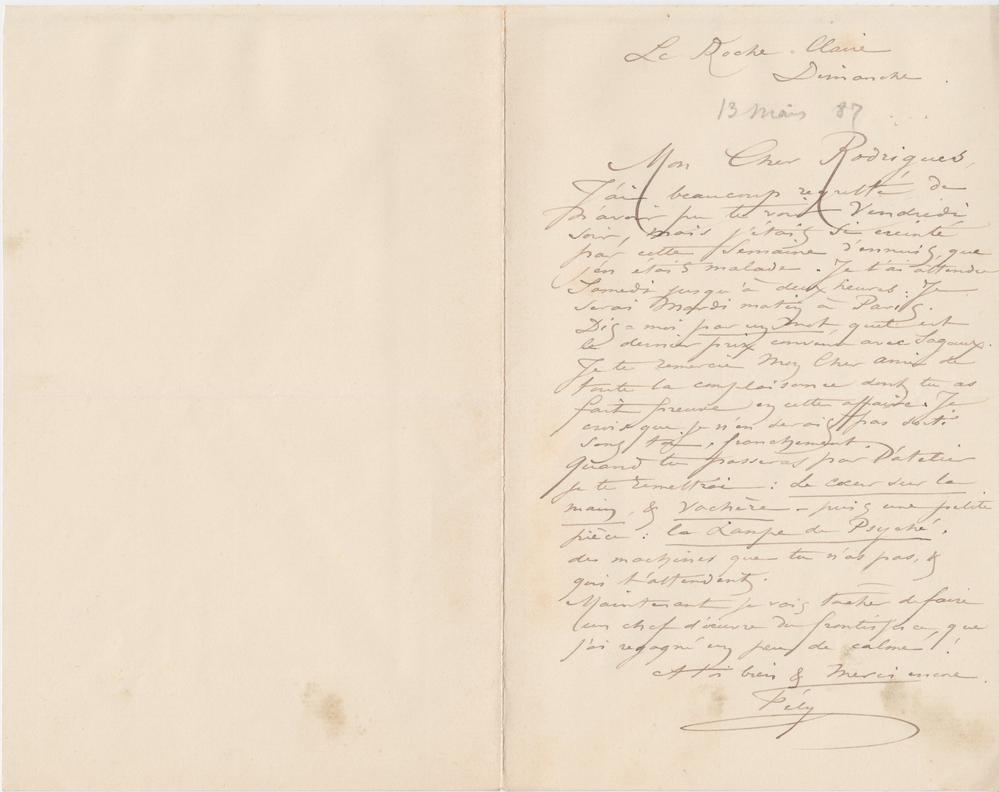 La Roche-Claire
Dimanche
13 Mars 87
Mon Cher Rodrigues,
J'ai beaucoup regretté de
n'avoir pu te voir Vendredi
soir, mais j'étais si éreinté
par cette semaine d'ennuis, que
j'en étais malade. Je t'ai attendu
Samedi jusqu'à deux heures. Je
serai Mardi matin à Paris.
Dis-moi par un mot quel est
le dernier prix convenu avec
Je te remercie Mon Cher ami de
toute la complaisance dont tu as
fait preuve en cette affaire. Je
crois que je n'en serais pas sorti
sans toi, franchement.
Quand tu passeras par l'atelier
je te remettrai : Le cœur sur la
main, & Vachère - puis une petite
pièce : la Lampe de Psyché,
des machines que tu n'as pas, &
qui t'attendent.
Maintenant je vais tacher de faire
un chef d'œuvre du frontispice, que
j'ai regagné un peu de calme !
A toi bien & Merci encore.
Fély